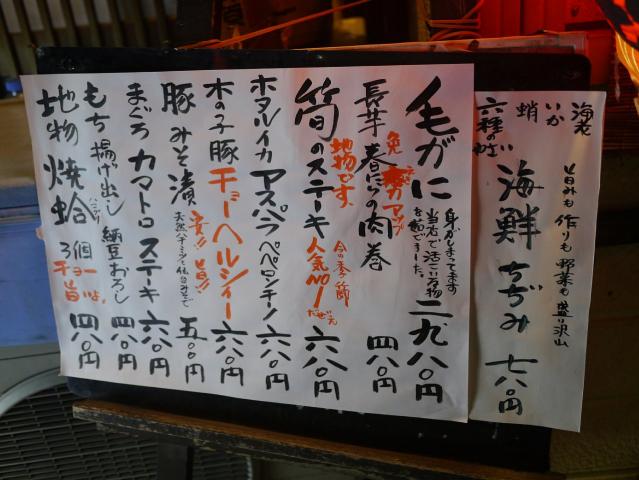 海老
いか
蛸
六種の
海鮮ちぢみ 七八〇円
旨みも 作りも 野菜も 盛り沢山
毛がに 二九八〇円
身がしまってます
当店で活きている物
を茹でました。
長芋の春にらの肉巻 四八〇円
免疫力アップ
筍のステーキ 六八〇円
地物です。
今の季節
人気No1
だぜぇ
ホタルイカ アスパラ ペペロンチーノ 六八〇円
木の子豚 チョーヘルシィー 六八〇円
豚みそ漬 五八〇円
安!! 旨!!
天然ハチミツと仙台みそで
まぐろ カマトロ ステーキ 六八〇円
もち 揚げ出し 納豆おろし 四八〇円
地物 焼蛤 四八〇円
ハマグリ
3個
チョー旨いよ。